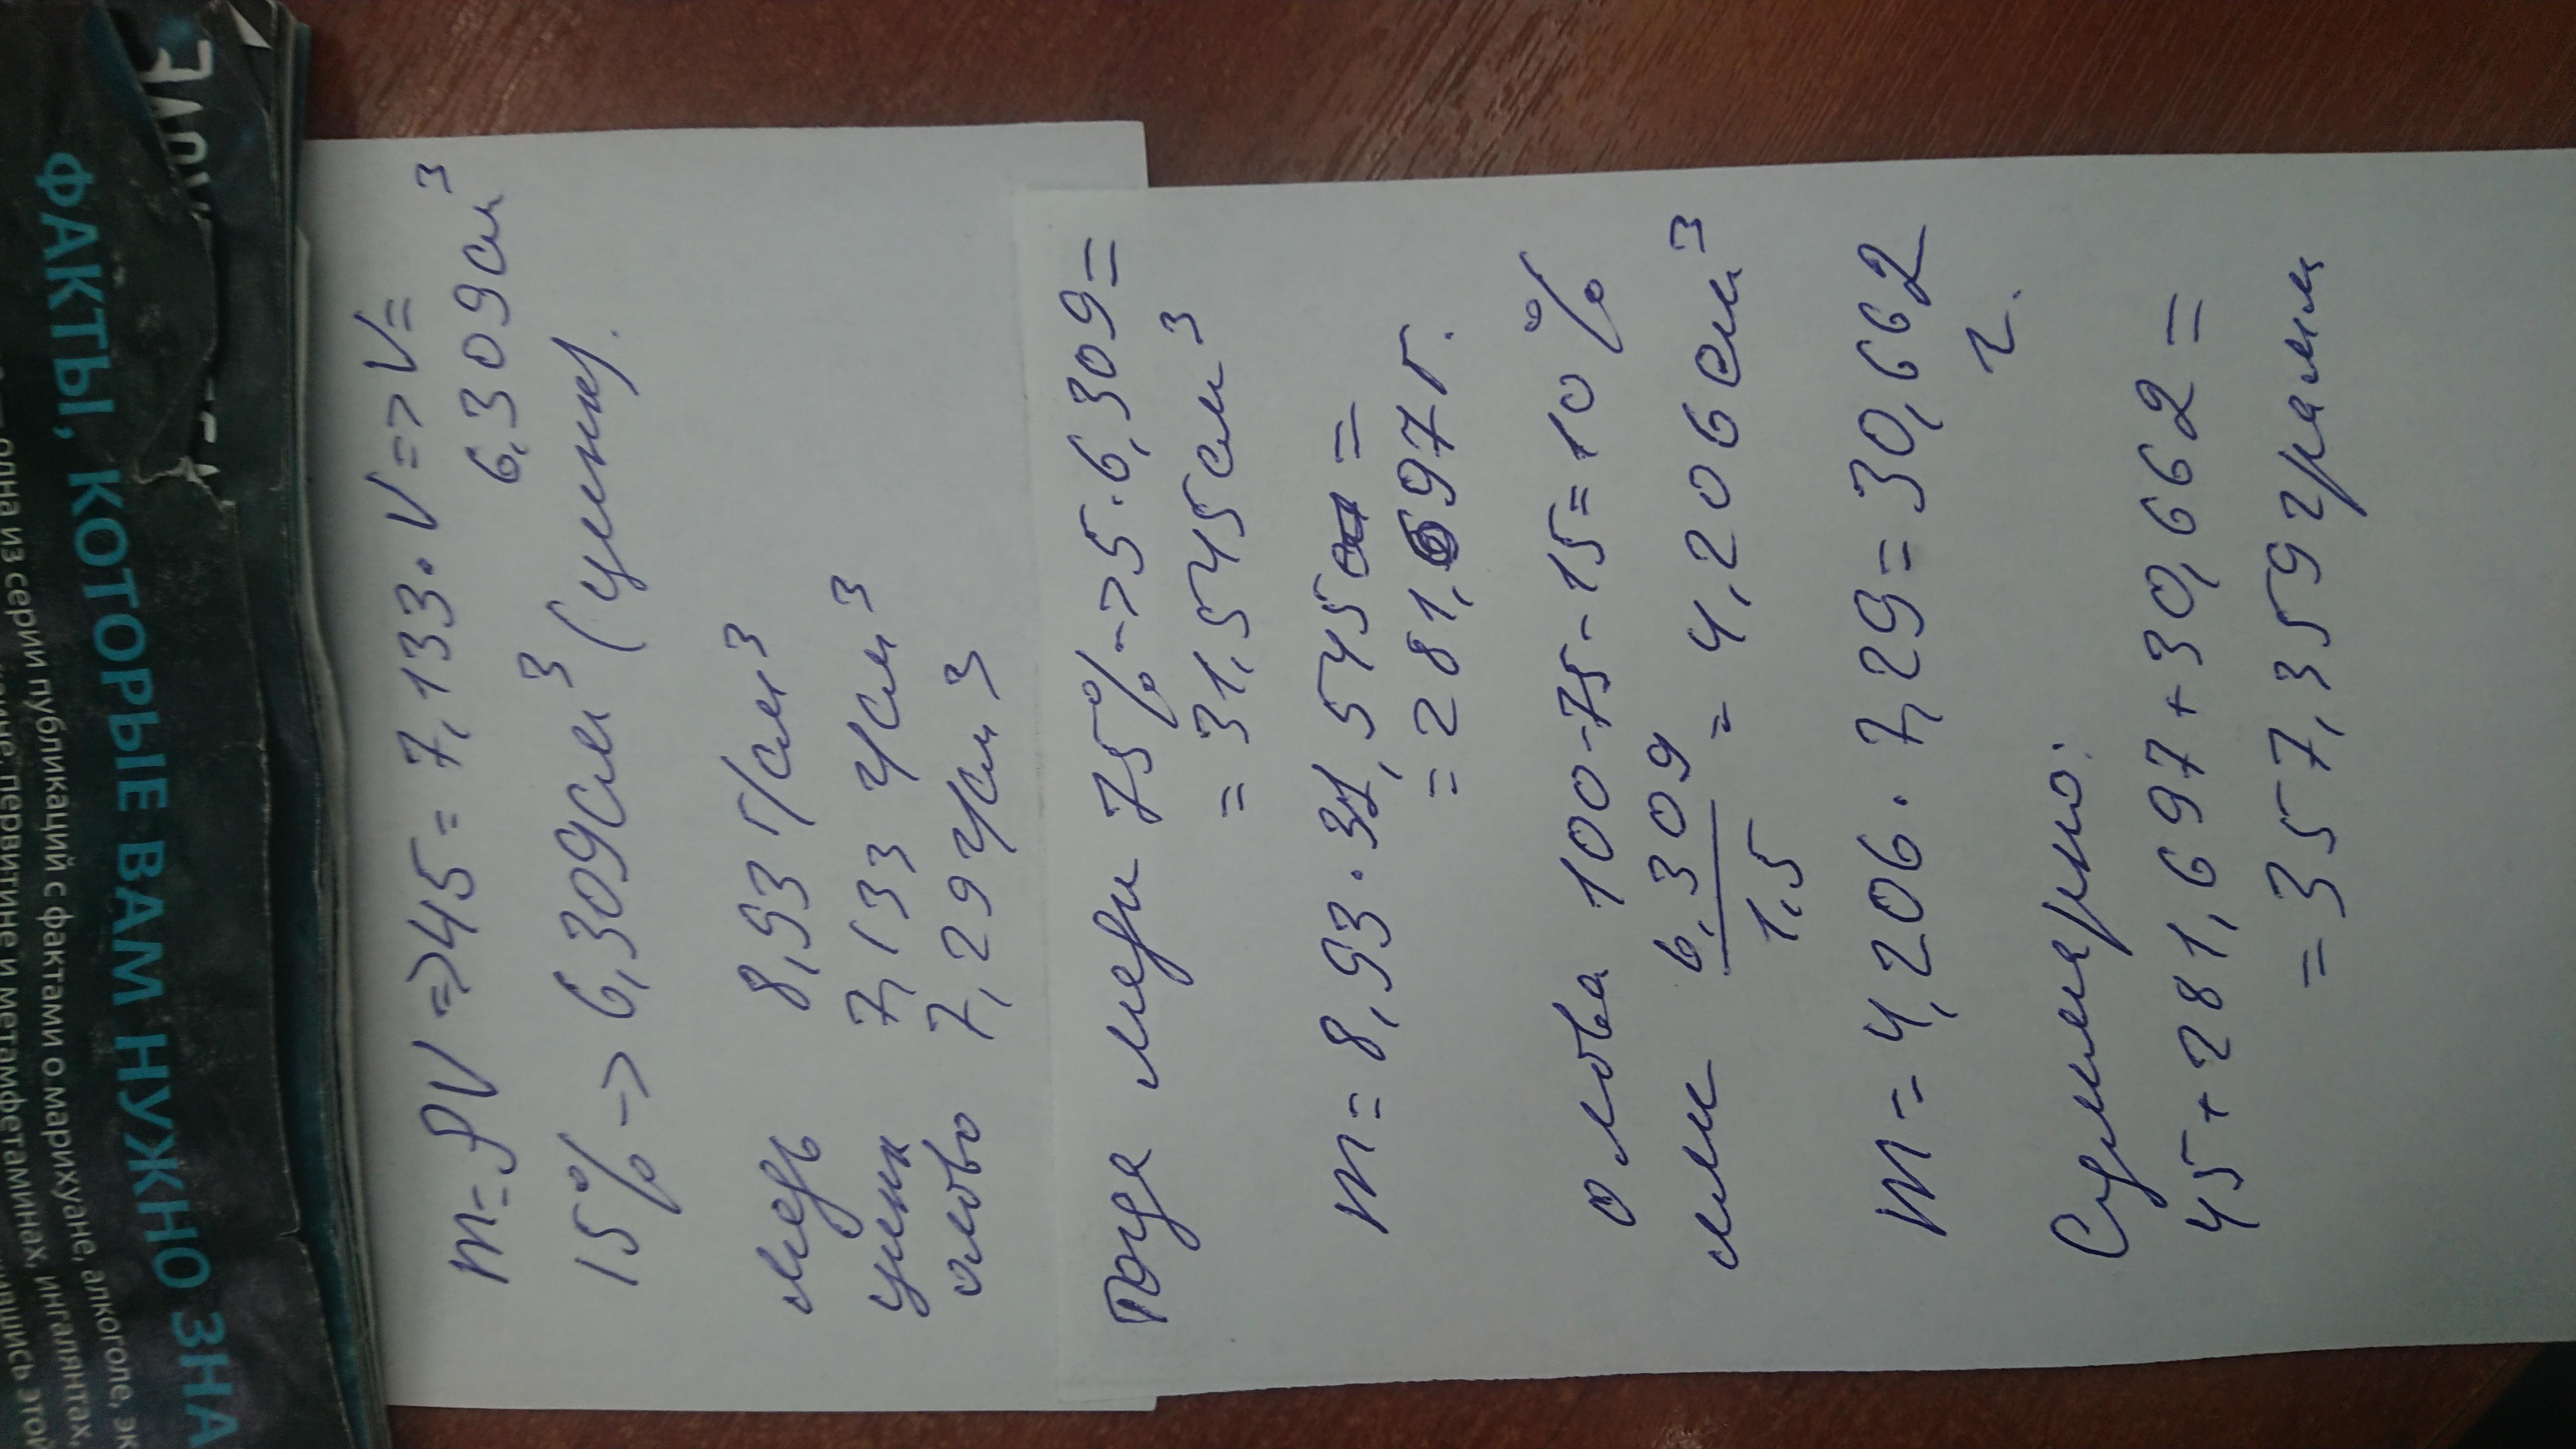 ФАКТЫ, КОТОРЫЕ ВАМ НУЖНО ЗНА
одна из серии публикаций с фактами о марихуане, алкоголе, эк
первитине и метамфетаминах, ингалянтах,
m=ρV=>45=7,133·V=>V=
6,309см³
15%->6,309см³(цинк).
медь 8,93 г/см³
цинк 7,133 г/см³
олово 7,29 г/см³
тогда меди 75%->5·6,309=
=31,545см³
m=8,93·31,545=
=281,697г.
олова 100-75-15=10%
или 6,309/1,5=4,206см³
m=4,206·7,29=30,662
г.
Суммарно:
45+281,697+30,662=
=357,359грамм